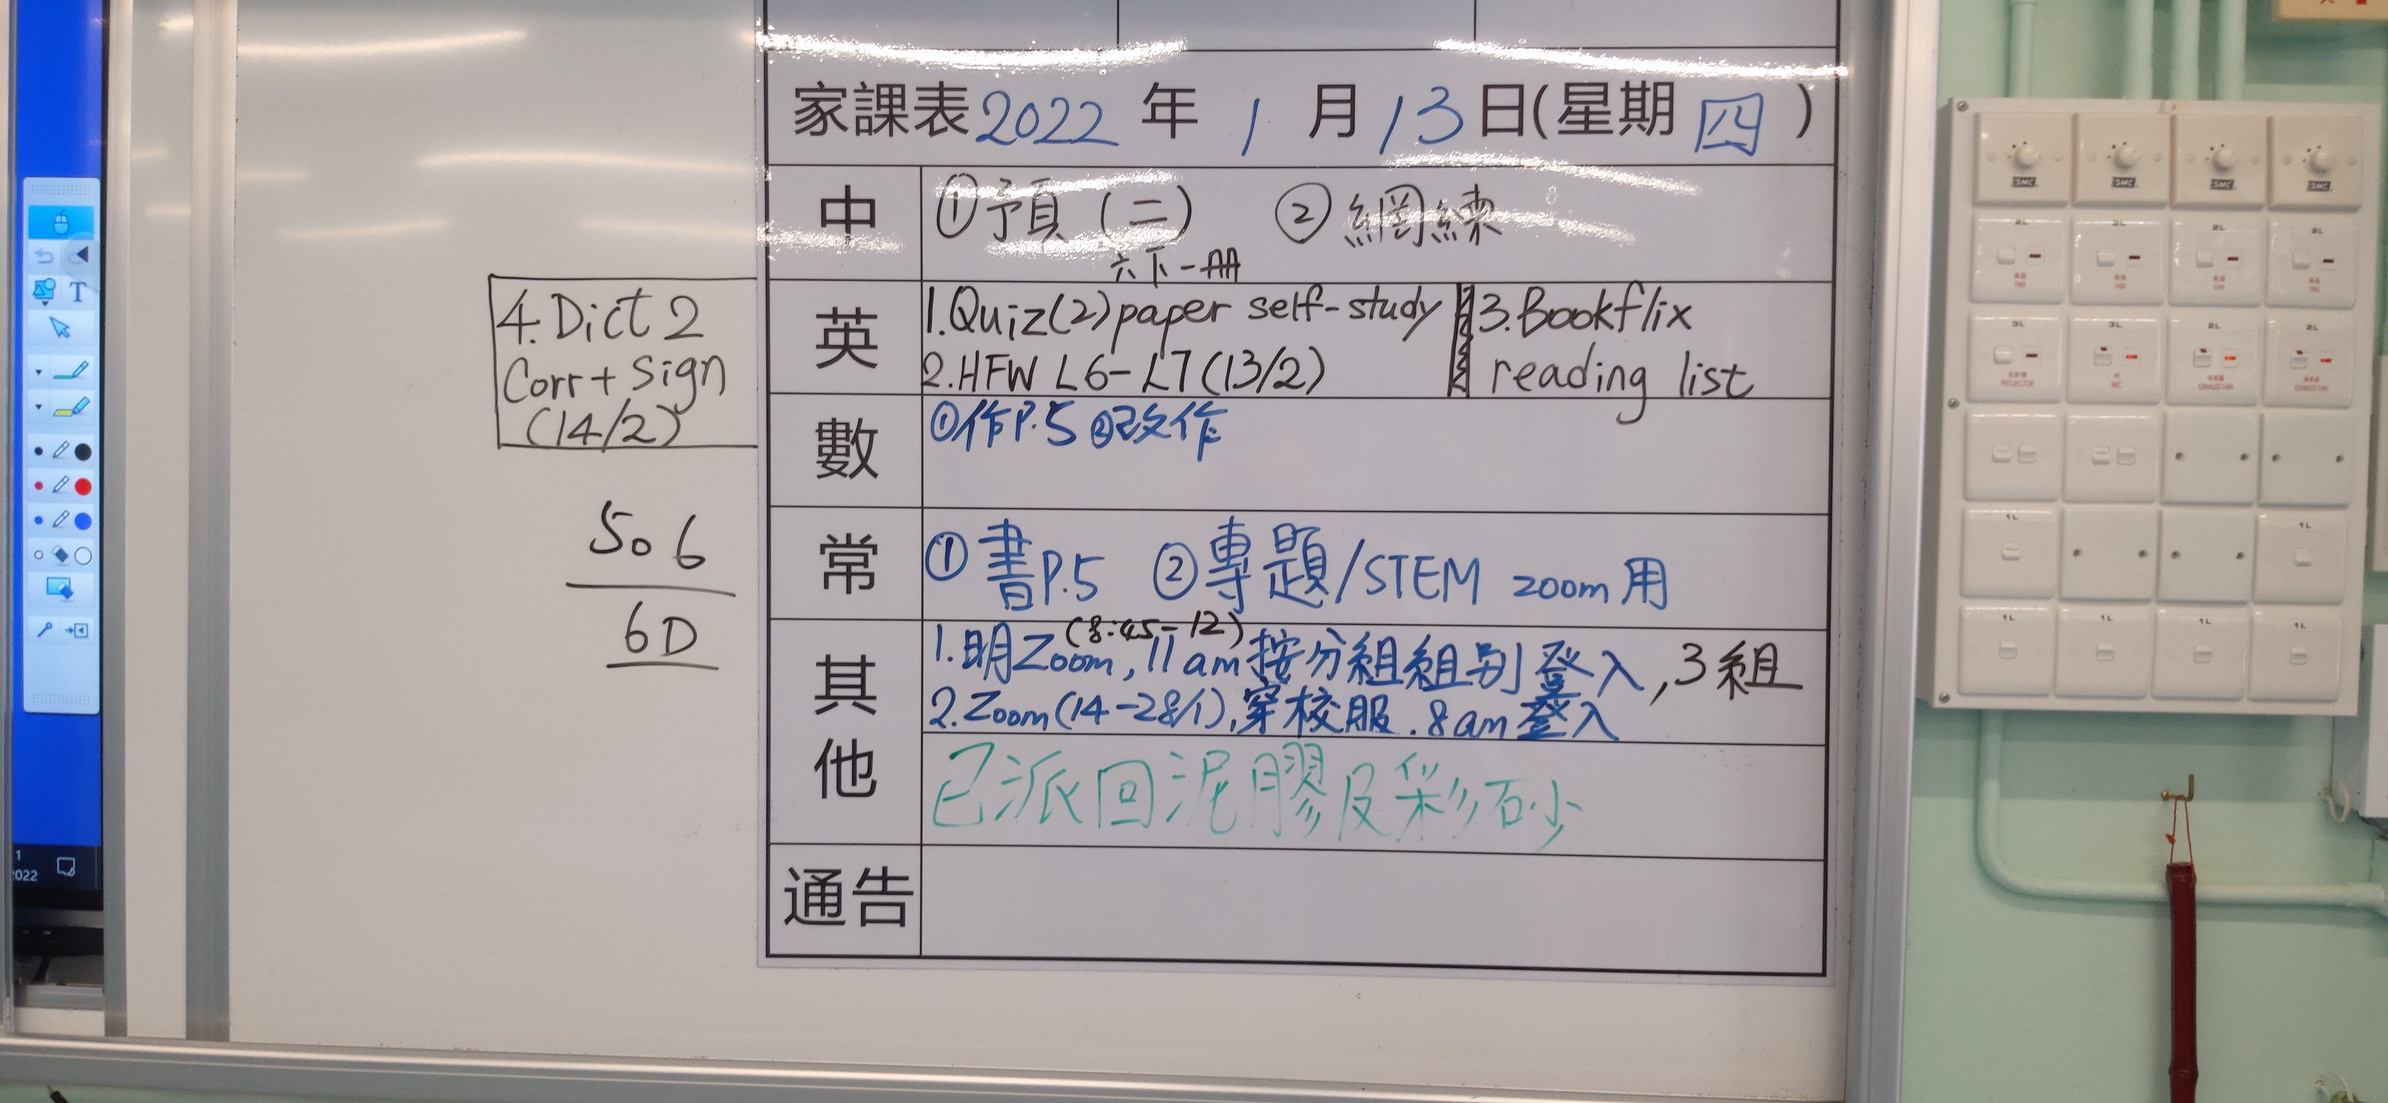 家課表 2022 年 1 月 13 日(星期 四 )
中 ①預(二) ②網練
六下一冊
英 1.Quiz(2)paper self-study 3.Bookflix
2.HFW L6-L7(13/2) reading list
4.Dict 2
Corr+Sign
(14/2)
數 ①作P.5 ②改作
506
6D
常 ①書P.5 ②專題/STEM zoom用
其他 (8:45-12)
1.明Zoom, 11am按分組組別登入,3組
2.Zoom(14-28/1),穿校服.8am登入
已派回泥膠及彩砂
通告
T
1
022
SMC SMC SMC SMC
2L 2L 2L 2L
3L 3L 2L 2L
PROJECTOR MIC EXHAUST FAN EXHAUST FAN
1L 1L
1L 1L 1L 1L